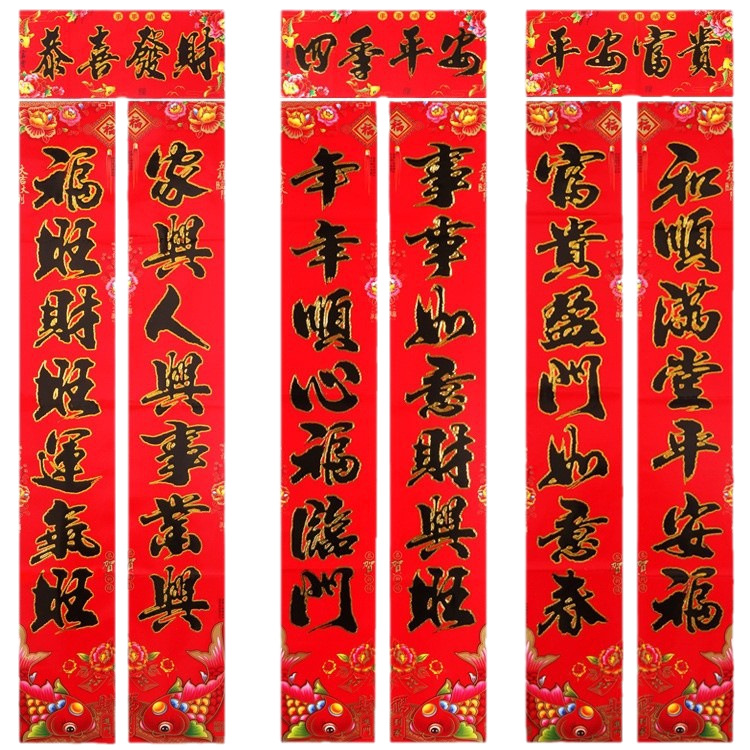 恭喜發財
福旺財旺運氣旺
家興人興事業興
四季平安
年年順心福臨門
事事如意財興旺
平安富貴
富貴盈門如意春
和順滿堂平安福